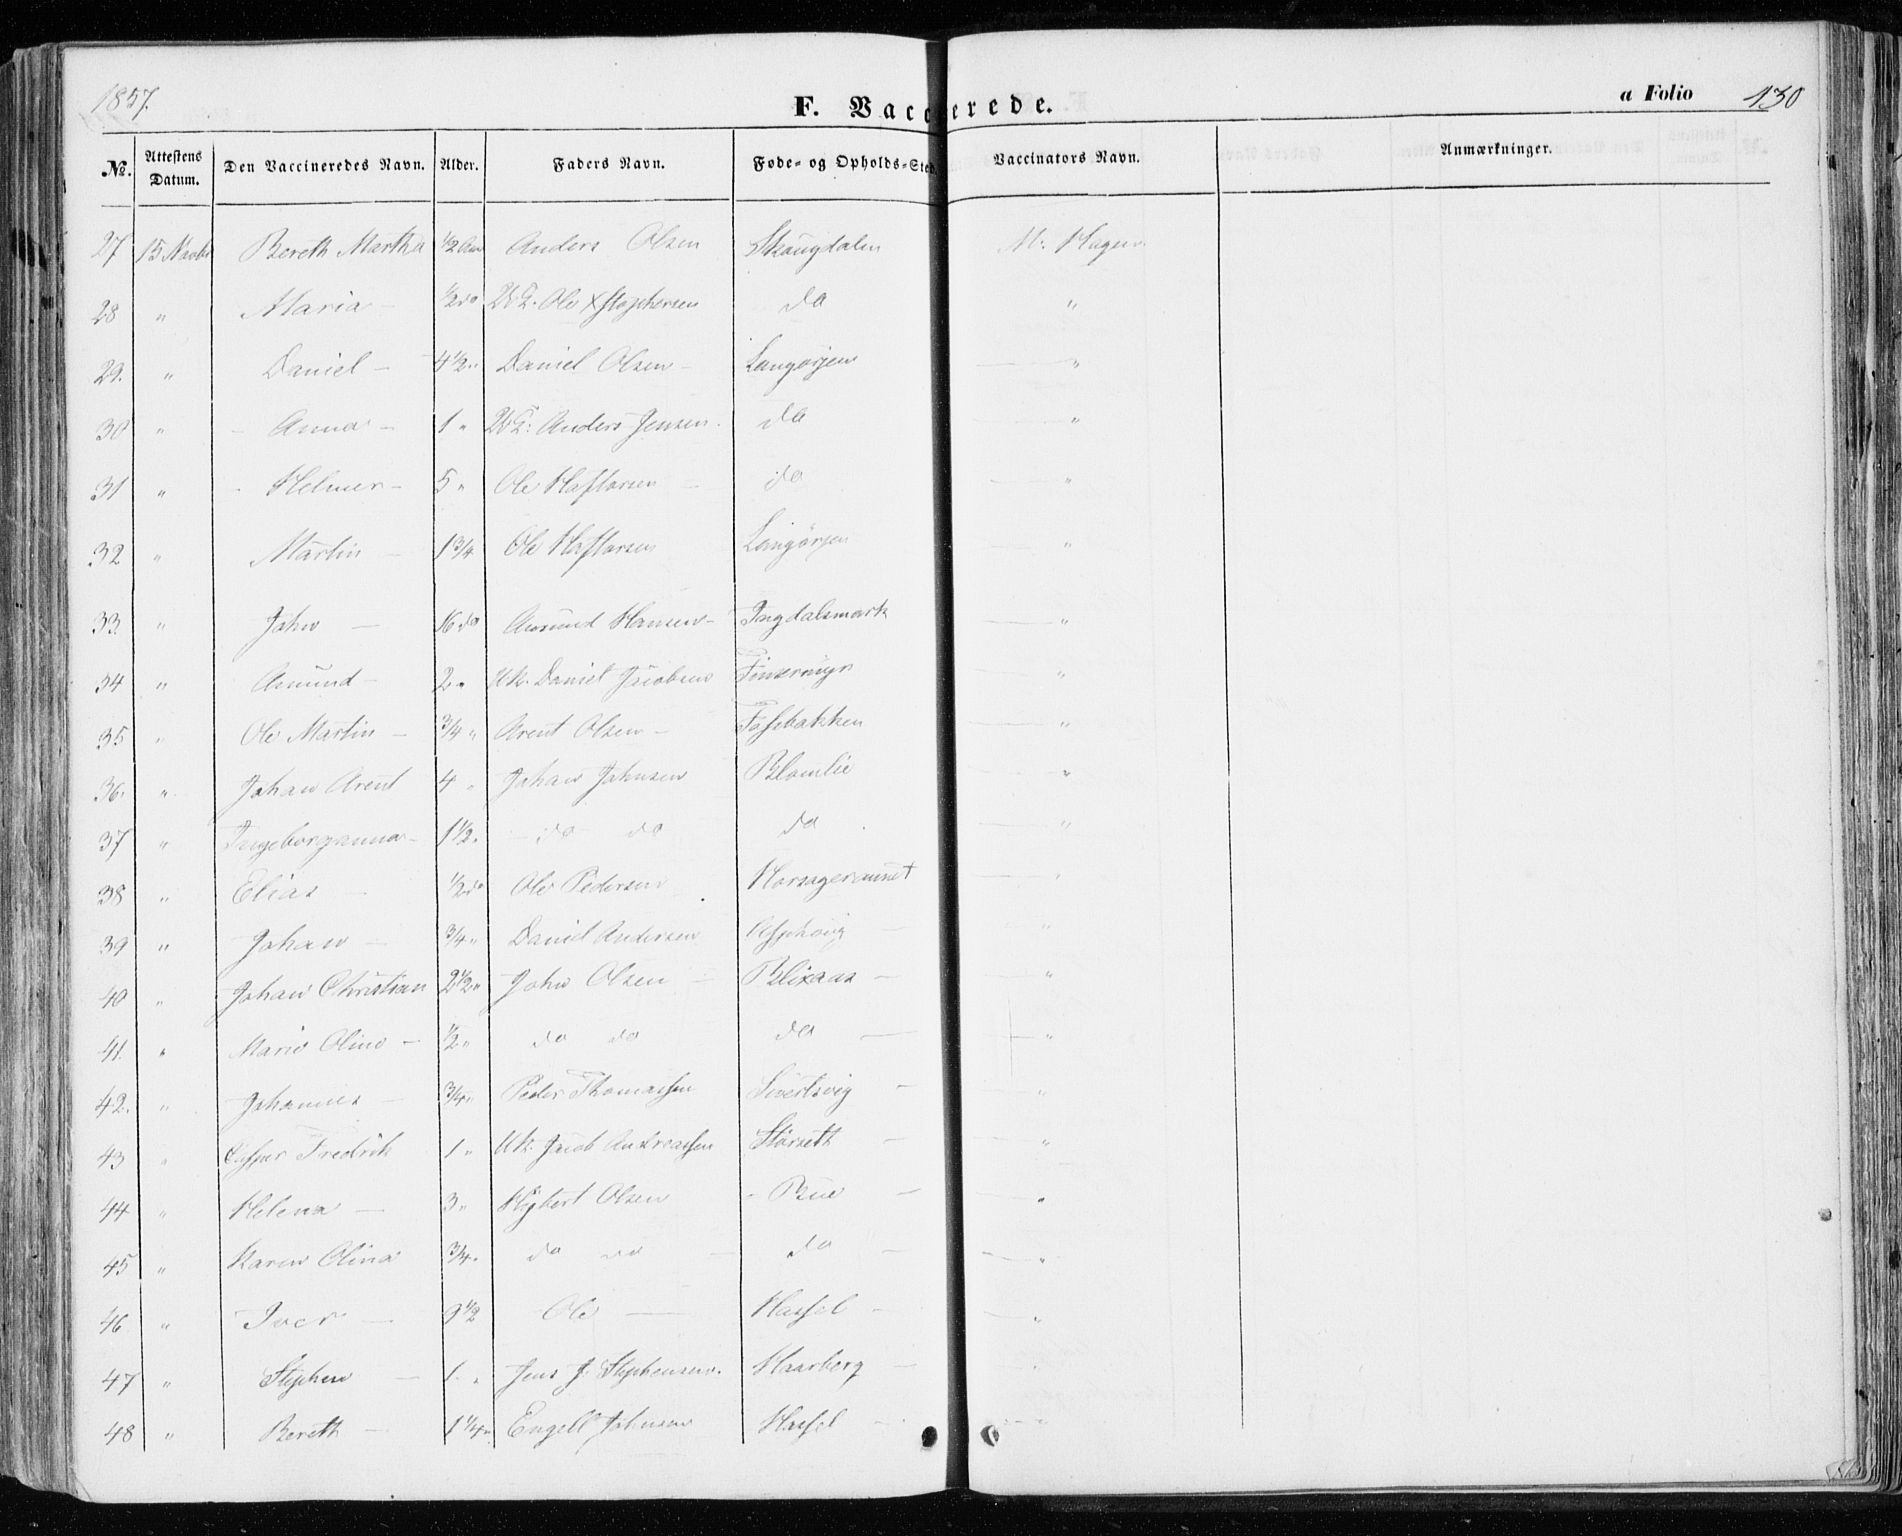 1857.
F. Vaccinerede.
a Folio 130
No. Attestens Datum. Den Vaccineredes Navn. Alder. Faders Navn. Føde- og Opholds-Sted. Vaccinators Navn. Anmærkninger.
27 15 Novbr Bereth Martha 1/2 Aar Anders Olsen Skaugdalen M: Hagen
28 " Maria - 1/2 do Ole do "
29. " Daniel - 4 1/2 " Daniel Olsen - Langørjen "
30 " - Anna - 1 " Anders Jensen. do "
31 " - Helmer - 5 " Ole Haftorsen - do "
32 " Martin - 1 3/4 Ole Haftorsen Langørjen "
33. " John - 16 do Amund Hansen - Ingdalsmark "
34 " Amund - 2 " Daniel Jacobsen "
35 " Ole Martin - 3/4 " Arent Olsen - Fossebakken "
36. " Johan Arent 4 " Johan Johnsen Blomlie "
37 " Ingeborganna - 1 1/2 " - do do do "
38 " Elias - 1/2 do Ole Pedersen "
39 " Johan - 3/4 " Daniel Andersen "
40 " Johan Christian 2 1/2 " John Olsen - Blixaas - "
41. " Marie Oline - 1/2 " do do do - "
42. " Johannes - 3/4 " Peder Thomassen Sivertsvig - "
43 " Fredrik 1 " Jacob Andreassen Størseth - "
44 " Helena - 3 " Olsen - Bue - "
45 " Karen Olina 3/4 " do do - do - "
46 " Iver - 9 1/2 Ole - Hassel - "
47 " Stephen - 1 " Jens J. Stephensen. Haarberg - "
48 " Bereth - 1 1/4 " Engell Johnsen Hassel - "